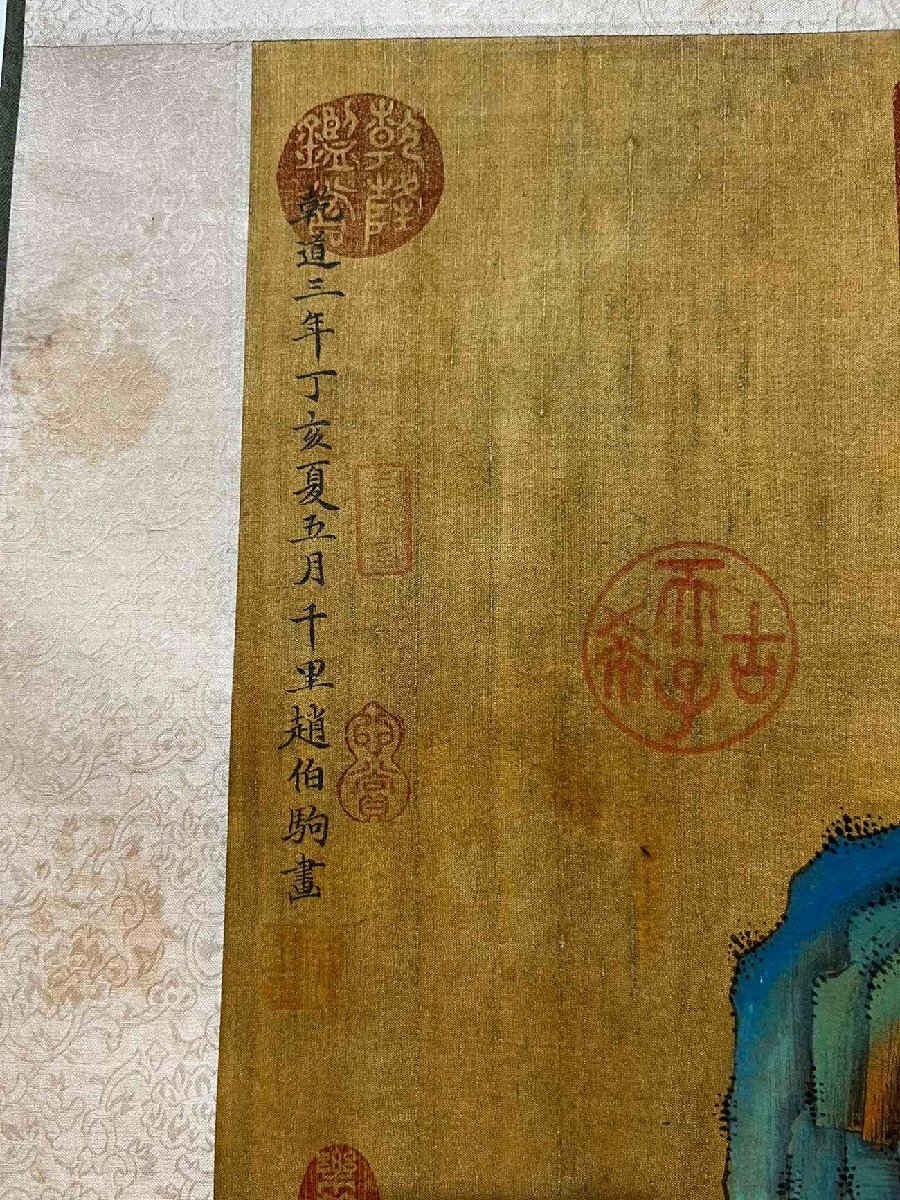 乾隆鑑賞
乾道三年丁亥夏五月千里趙伯駒畫
古希天子